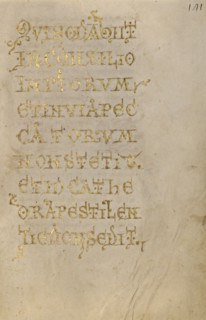 QUI NON ABIIT
IN CONSILIO
IMPIORUM
ET IN VIA PEC
CATORUM
NON STETIT
ET IN CATHE
DRA PESTILEN
TIE NON SEDIT